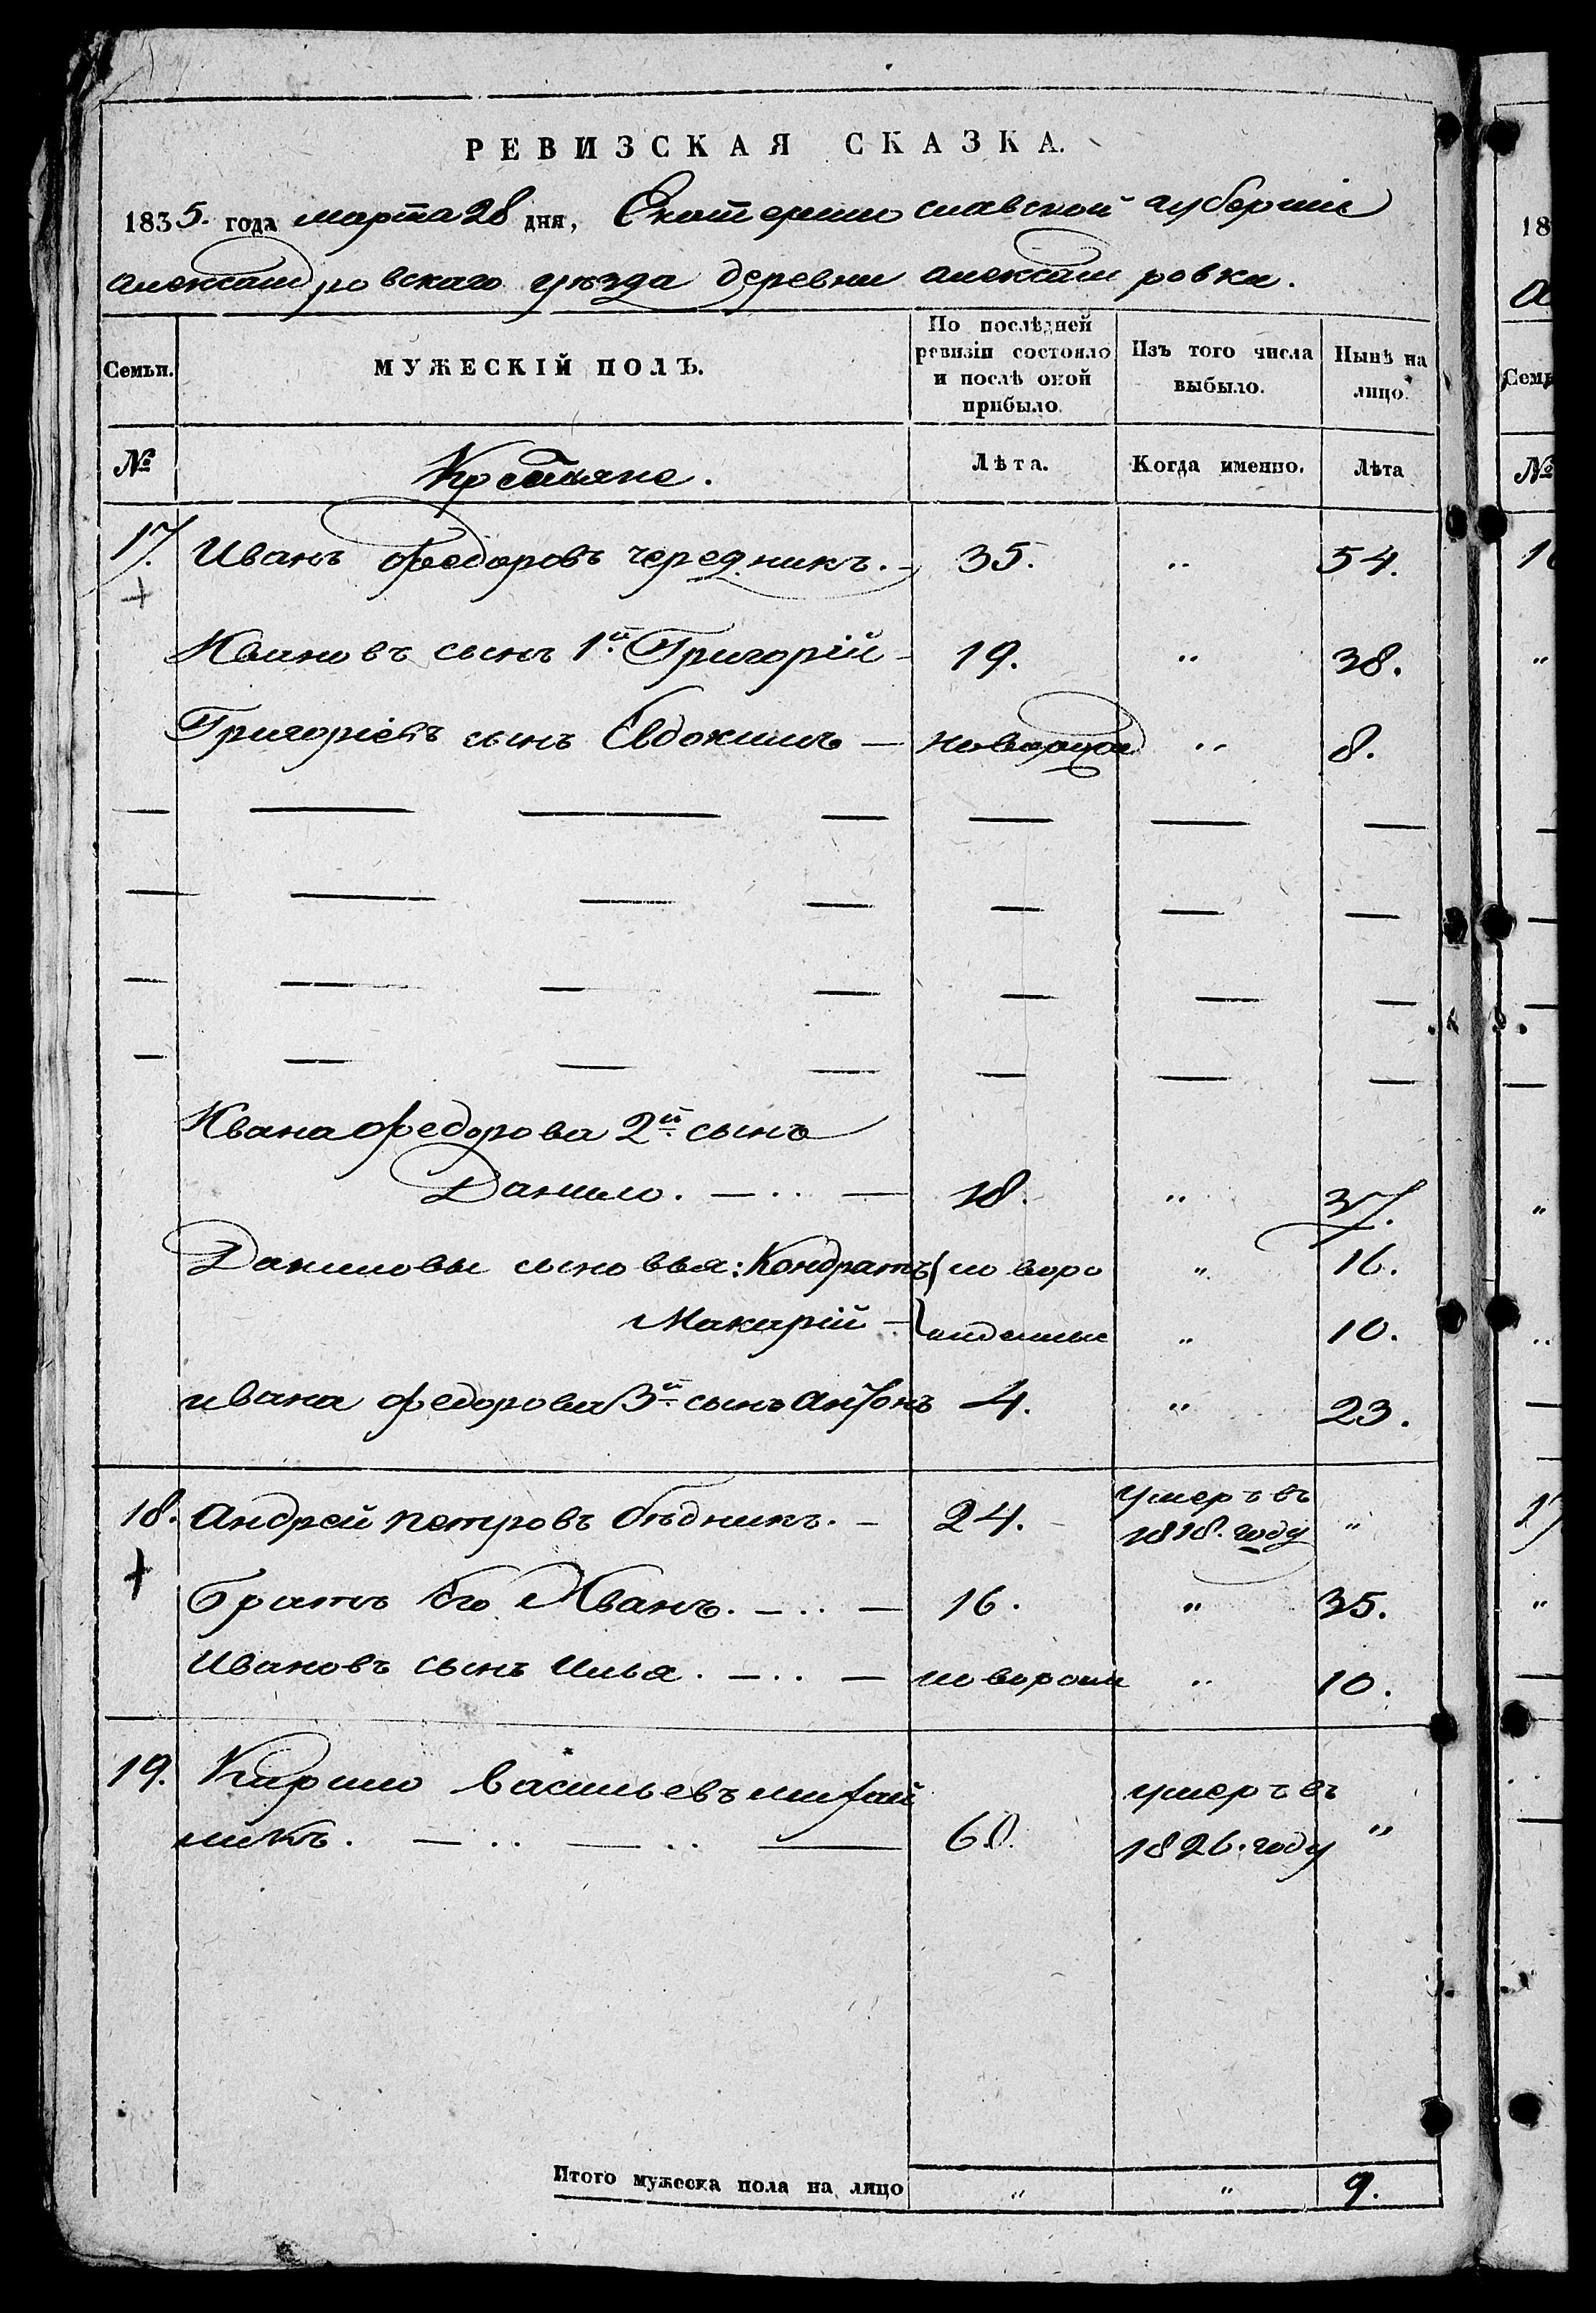 РЕВИЗСКАЯ СКАЗКА.
1835. года марта 28 дня, Екатеринославской губерніи
александровскаго уѣзда деревни александровки.
Семьи. МУЖЕСКІЙ ПОЛЪ. По послѣдней ревизіи состояло и послѣ оной прибыло. Изъ того числа выбыло. Нынѣ на лицо.
№ Крестьяне. Лѣта. Когда именно. Лѣта
17. Иванъ федоровъ чередникъ. 35. " 54.
Ивановъ сынъ 1й Григорій 19. " 38.
Григоріевъ сынъ Евдокимъ — новорож " 8.
Ивана федорова 2й сынъ
Данило. — .. — 18. " 37.
Даниловы сыновья: Кондратъ новоро " 16.
Макарій — жденные " 10.
ивана федорова 3й сынъ антонъ 4. " 23.
18. андрей петровъ бѣдникъ. — 24. умеръ въ 1818. году "
братъ его Иванъ. — .. — 16. " 35.
Ивановъ сынъ илья. — .. — новорож " 10.
19. Кирило васильевъ
никъ. — .. — .. — 60. умеръ въ 1826. году "
Итого мужеска пола на лицо " " 9.
18
Семь
№